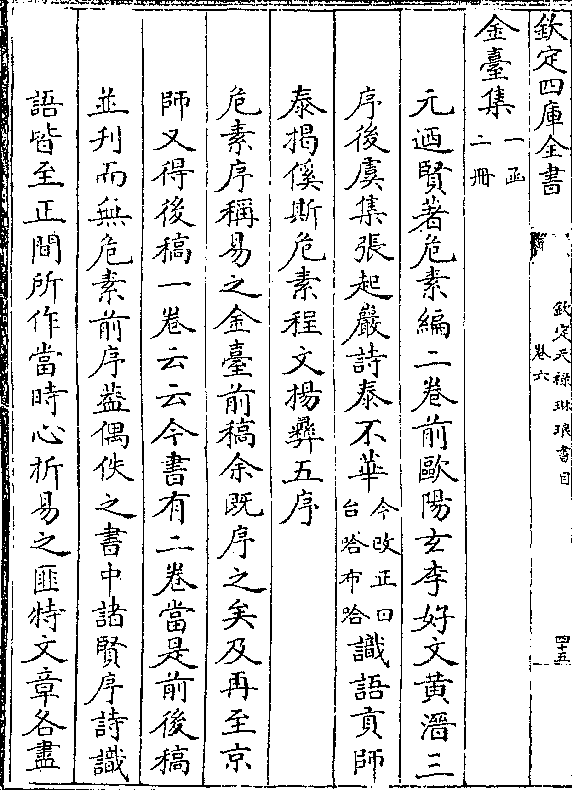 欽定四庫全書
欽定天祿琳琅書目
卷六
四十五
金臺集一函二冊
元迺賢著危素編二卷前歐陽玄李好文黃溍三
序後虞集張起巖詩泰不華今改正曰台哈布哈識語貢師
泰揭傒斯危素程文揚彝五序
危素序稱易之金臺前稿余既序之矣及再至京
師又得後稿一卷云云今書有二卷當是前後稿
並刋而無危素前序葢偶佚之書中諸賢序詩識
語皆至正間所作當時心折易之匪特文章各盡